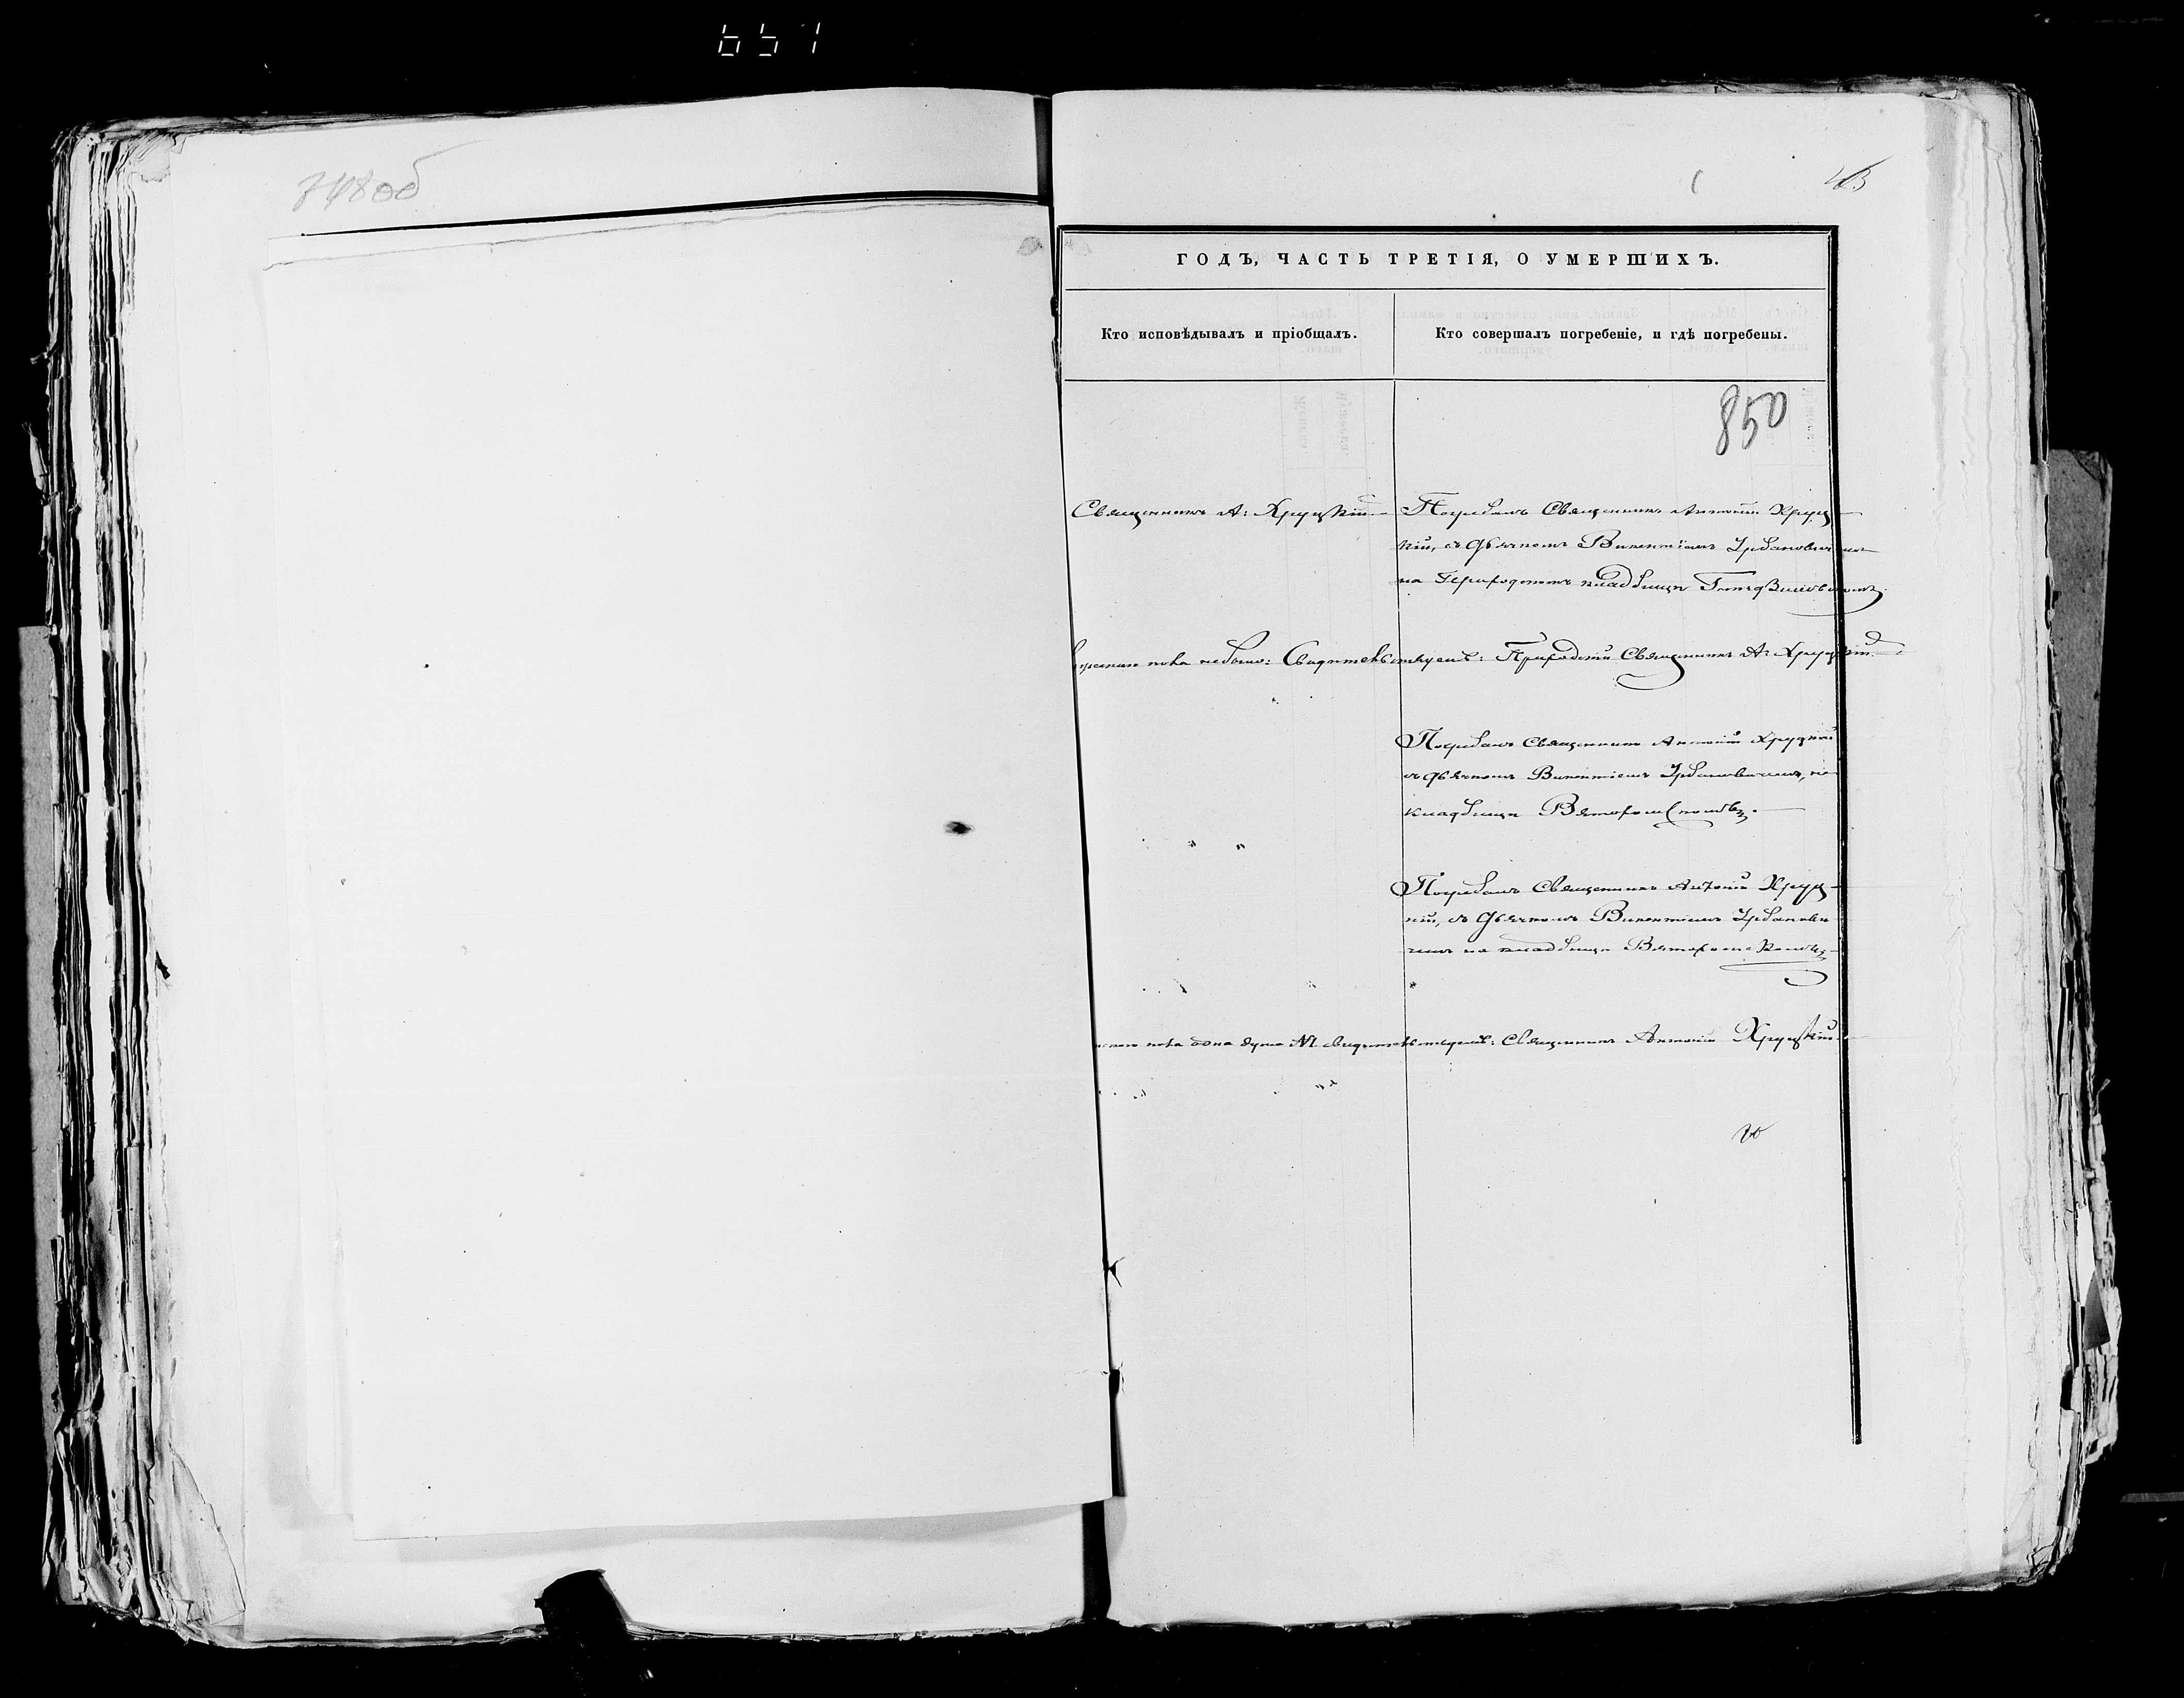 651
748об
43
ГОДЪ, ЧАСТЬ ТРЕТІЯ, О УМЕРШИХЪ.
Кто исповѣдывалъ и пріобщалъ.
Кто совершалъ погребеніе, и гдѣ погребены.
850
Священникъ А: Хруцкій
Погребалъ Священникъ Антоній Хруц-
кій, съ дьячкомъ Викентіемъ Урбановичемъ
на Приходскомъ кладбищѣ
пола небыло: Свидѣтельствуемъ: Приходскій Священникъ А: Хруцкій
Погребалъ Священникъ Антоній Хруцкій
съ дьячкомъ Викентіемъ Урбановичемъ, на
кладбищѣ
Погребалъ Священникъ Антоній Хруц-
кій, съ дьячкомъ Викентіемъ Урбанови-
чемъ на кладбищѣ
пола одна душа свидѣтельствуемъ: Священникъ Антоній Хруцкій